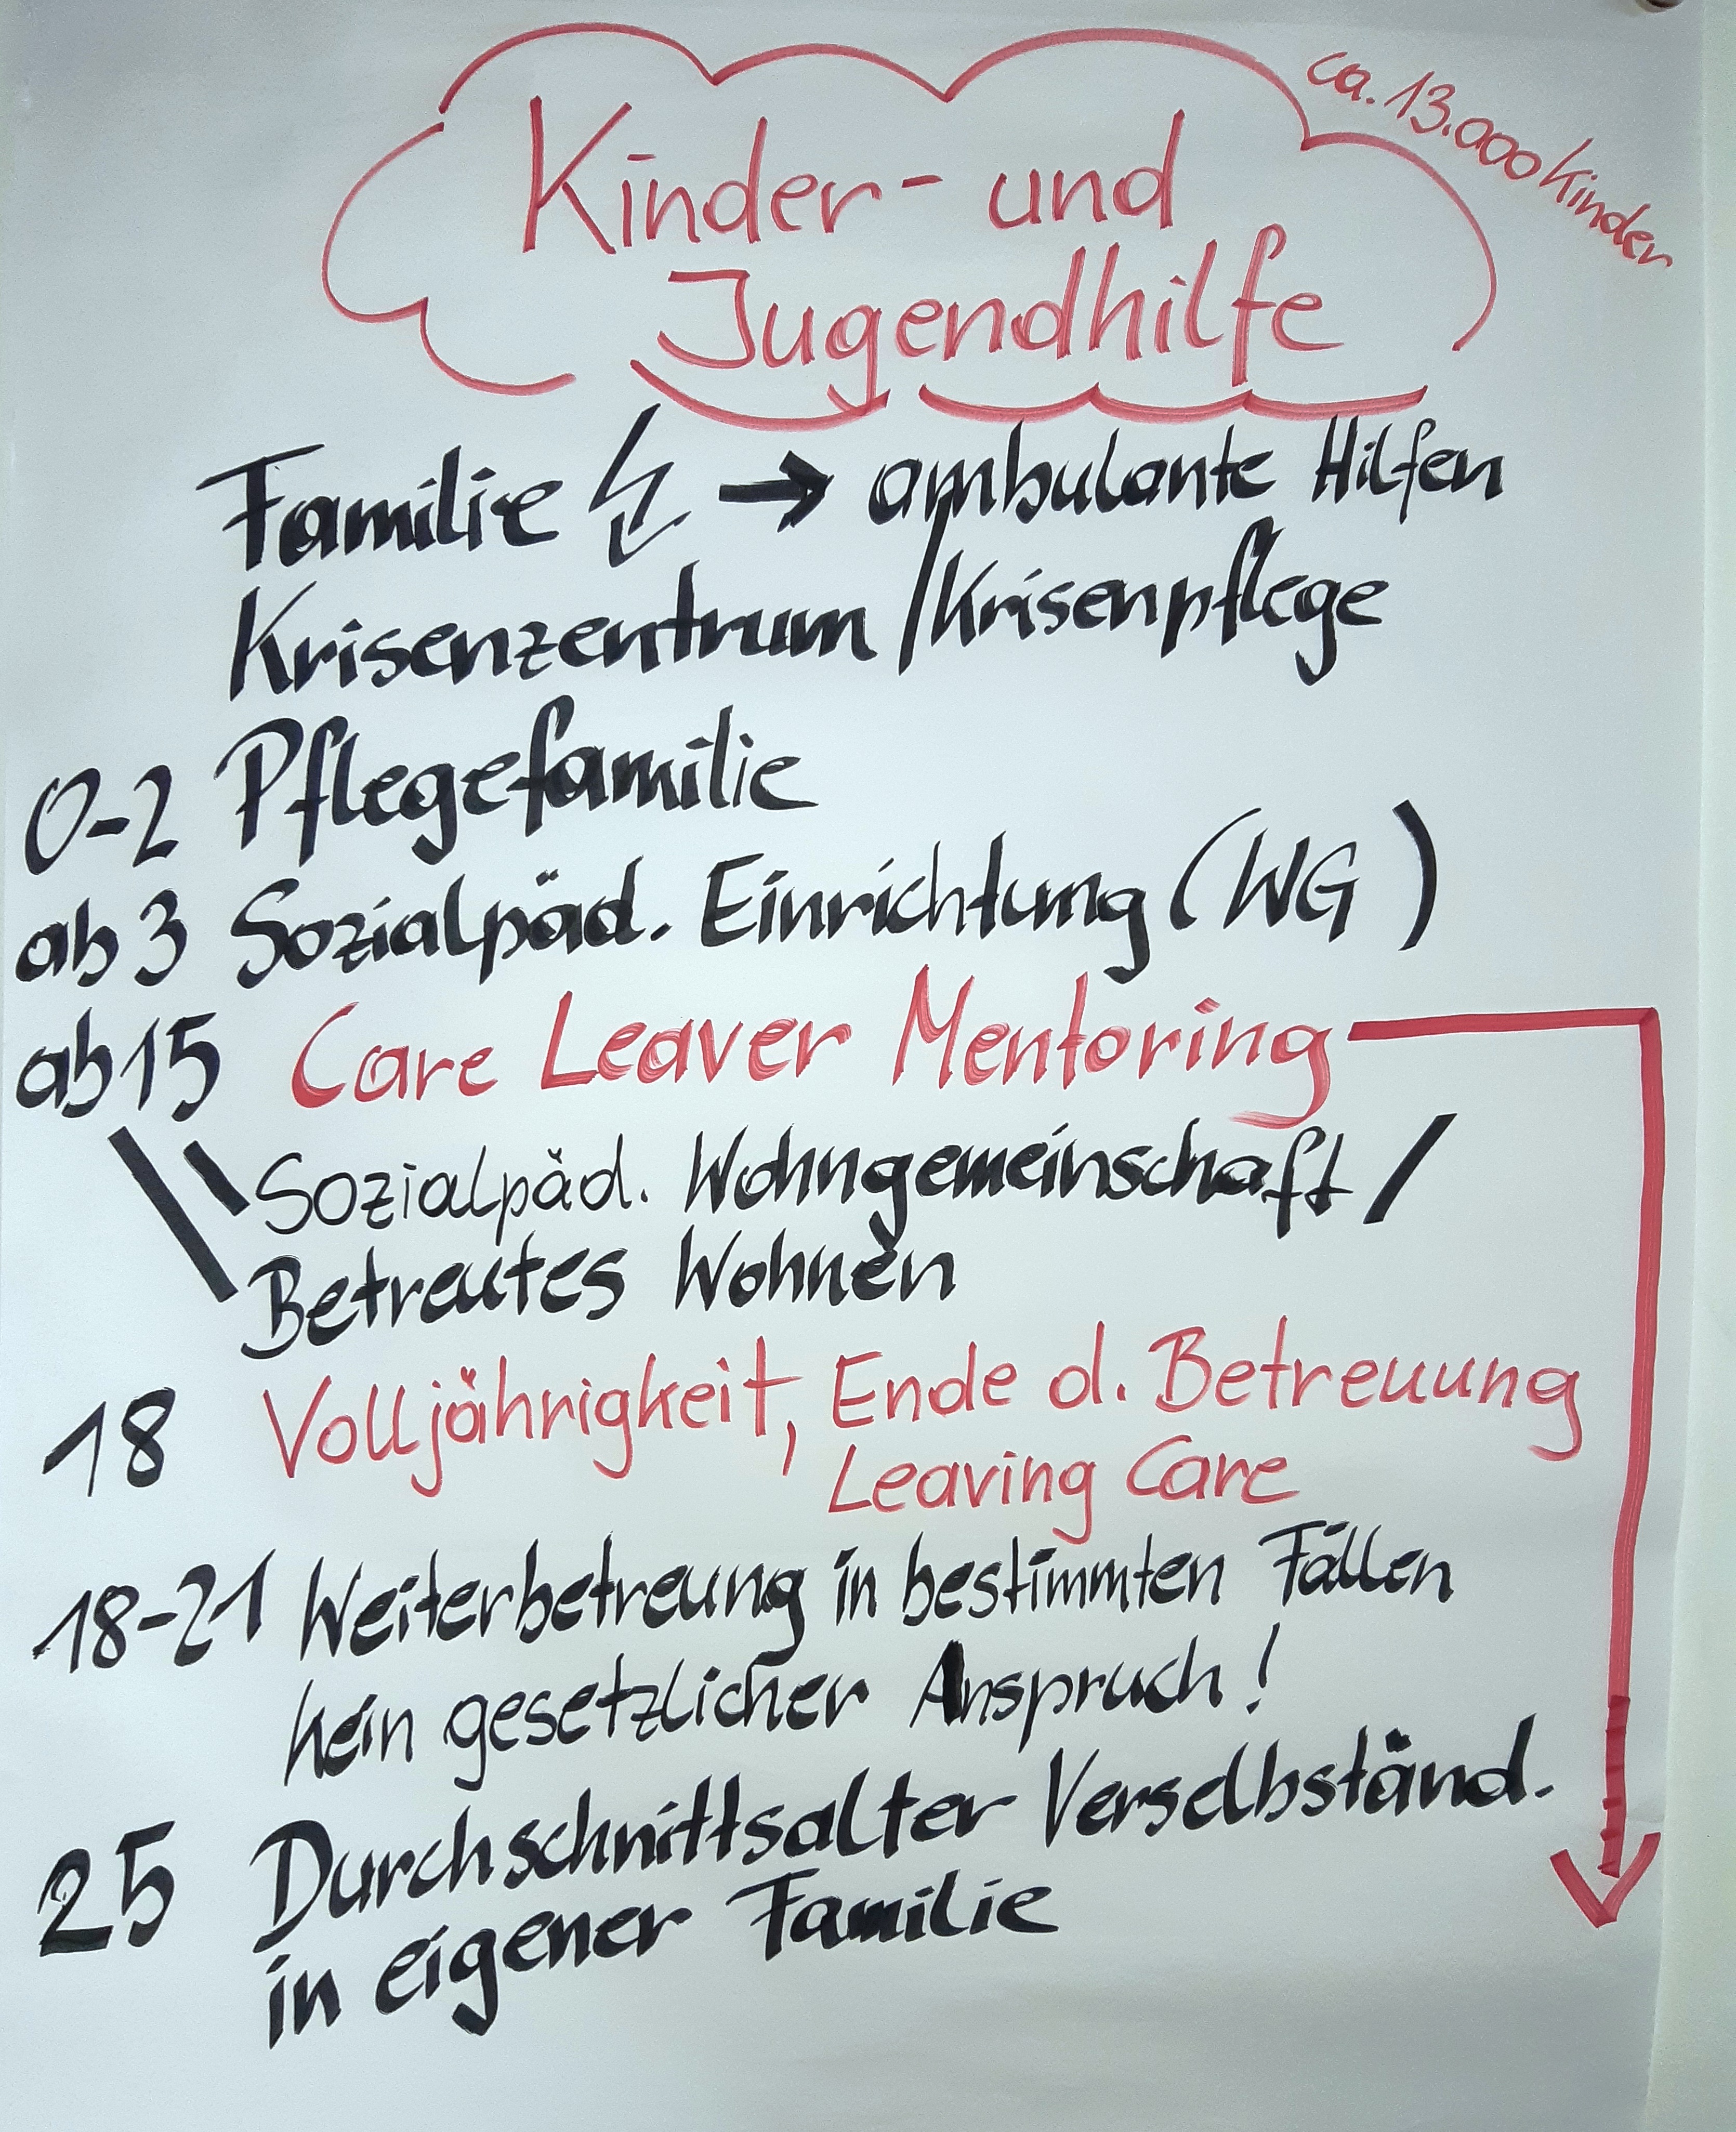 ca. 13.000 Kinder
Kinder- und
Jugendhilfe
Familie → ambulante Hilfen
Krisenzentrum / Krisenpflege
0-2 Pflegefamilie
ab 3 Sozialpäd. Einrichtung (WG)
ab 15 Care Leaver Mentoring
Sozialpäd. Wohngemeinschaft /
Betreutes Wohnen
18 Volljährigkeit, Ende d. Betreuung
Leaving Care
18-21 Weiterbetreung in bestimmten Fällen
kein gesetzlicher Anspruch!
25 Durchschnittsalter Verselbständ.
in eigener Familie